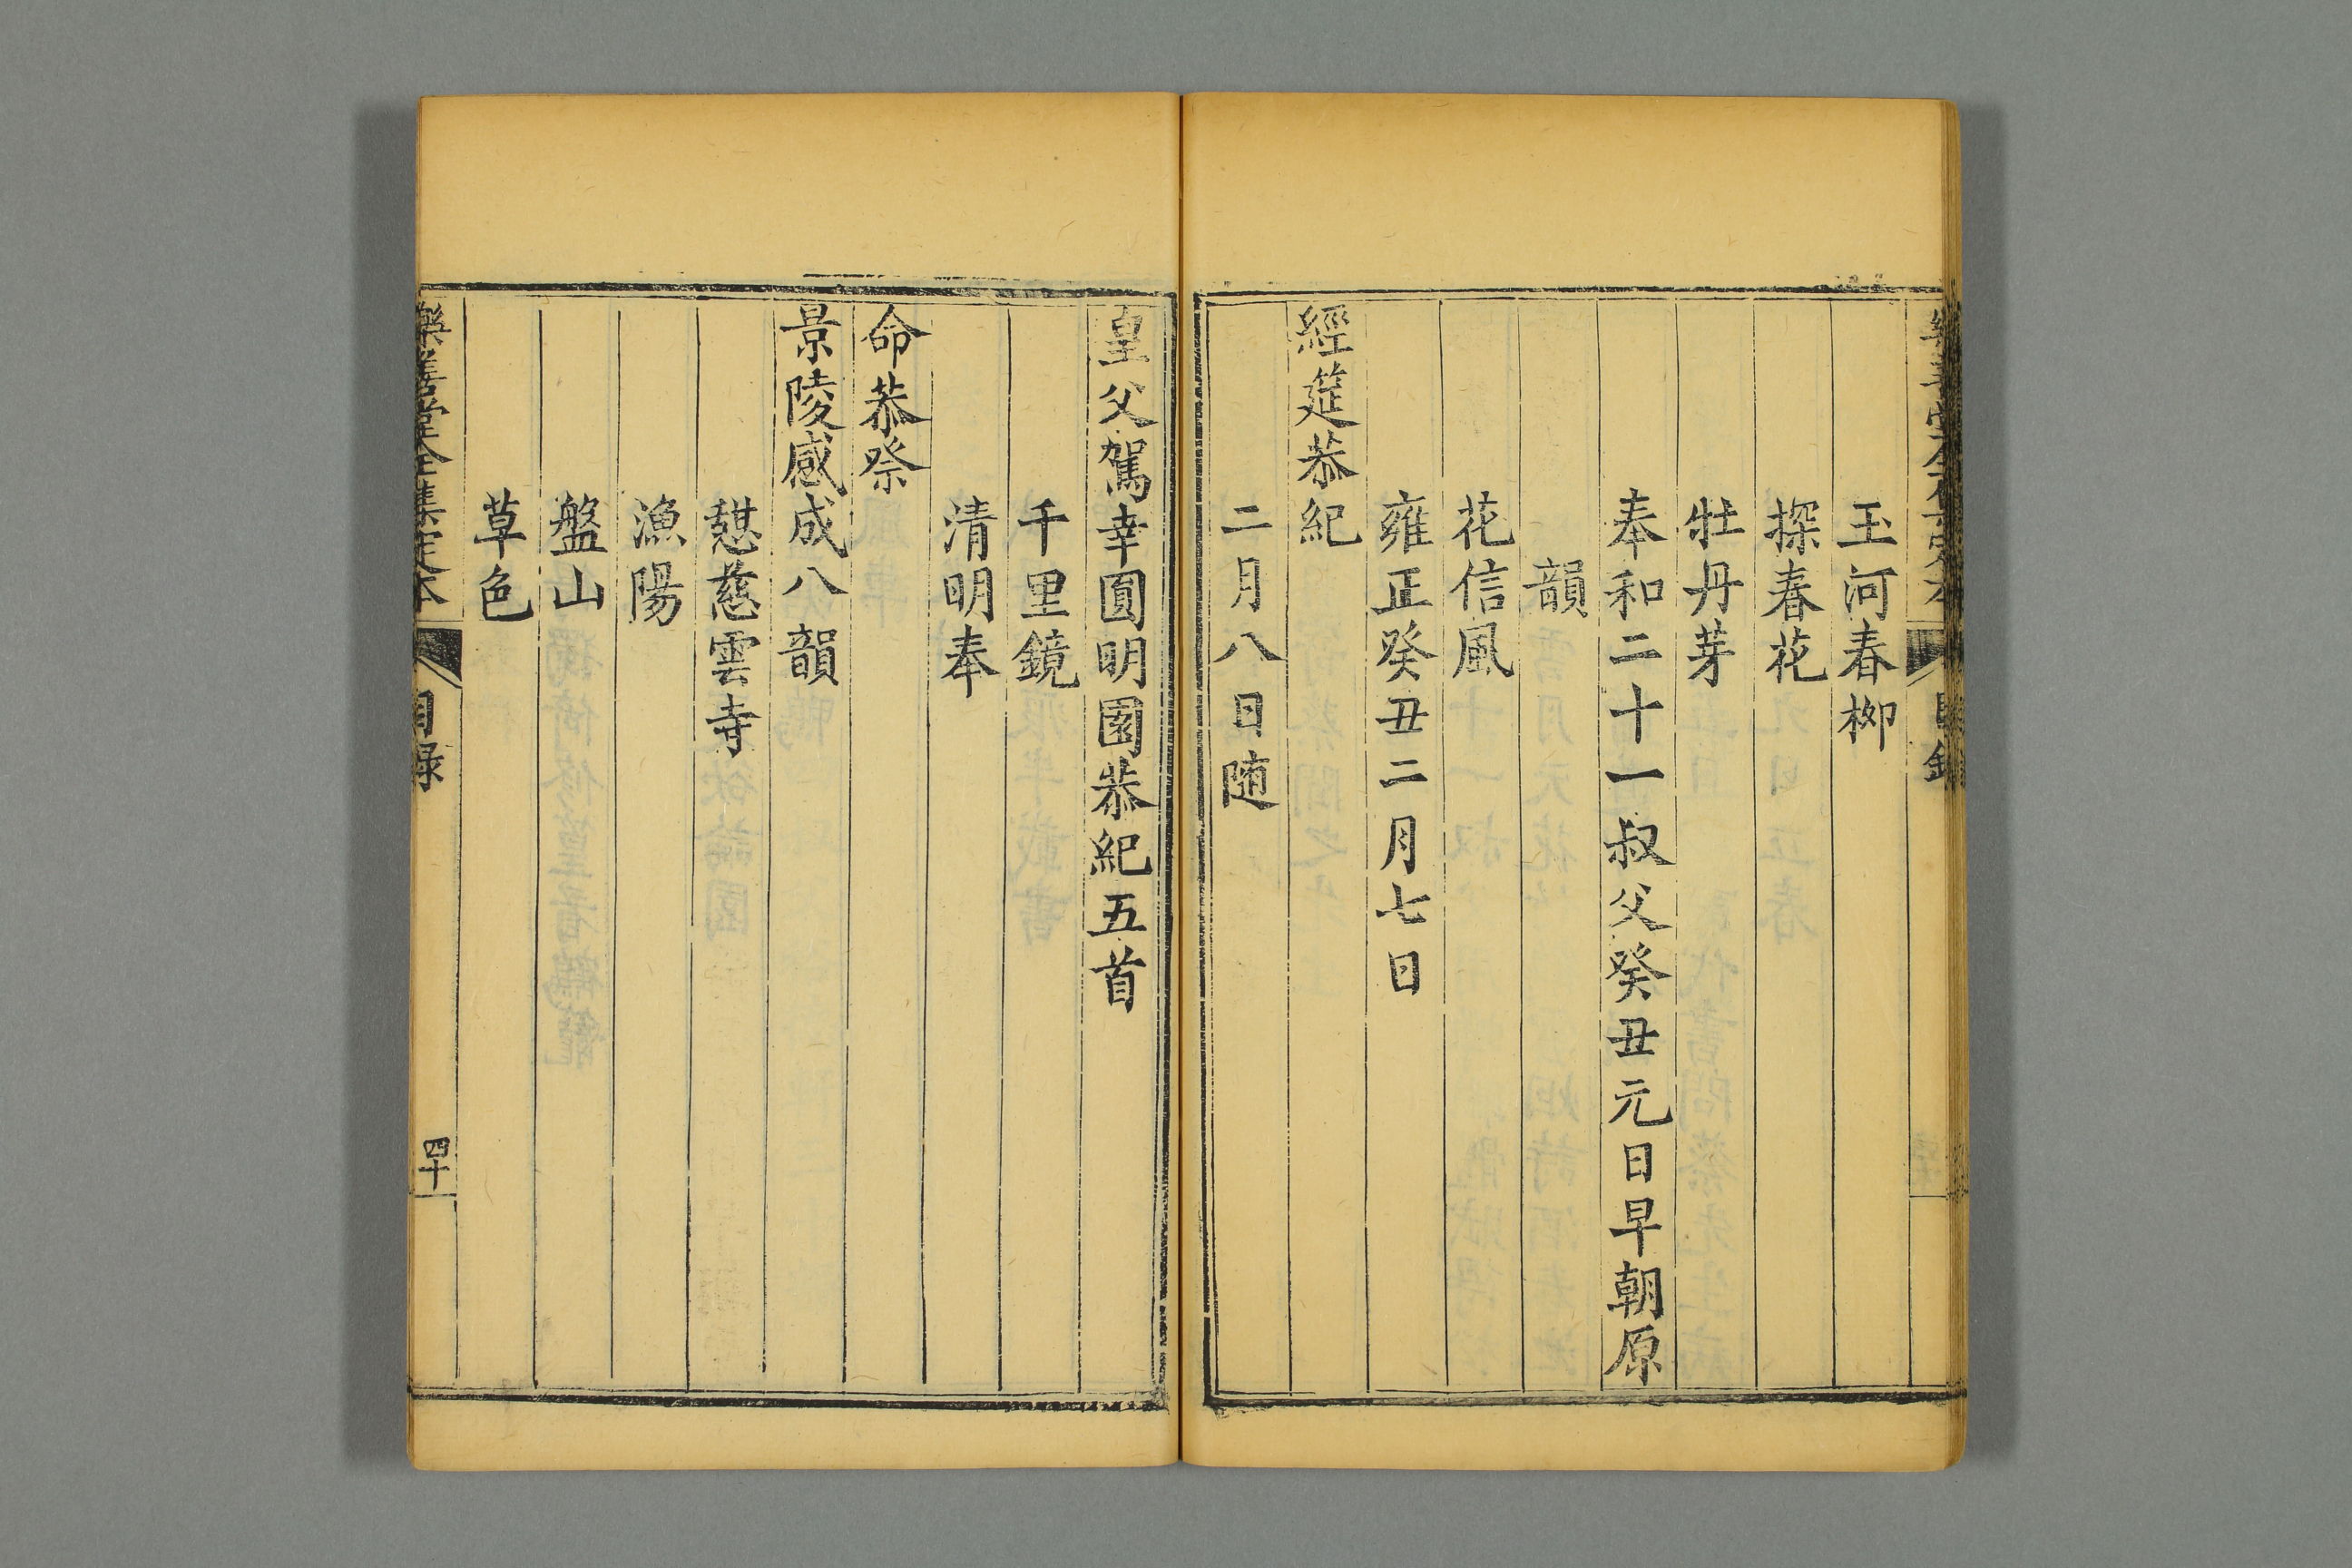 玉河春栁
探春花
牡丹芽
奉和二十一叔父癸丑元日早朝原
韻
花信風
雍正癸丑二月七日
經筵恭紀
二月八日随
皇父駕幸圓明園恭紀五首
千里鏡
清明奉
命恭祭
景陵感成八韻
憇慈雲寺
漁陽
盤山
草色
樂善堂全集定本
目録
四十